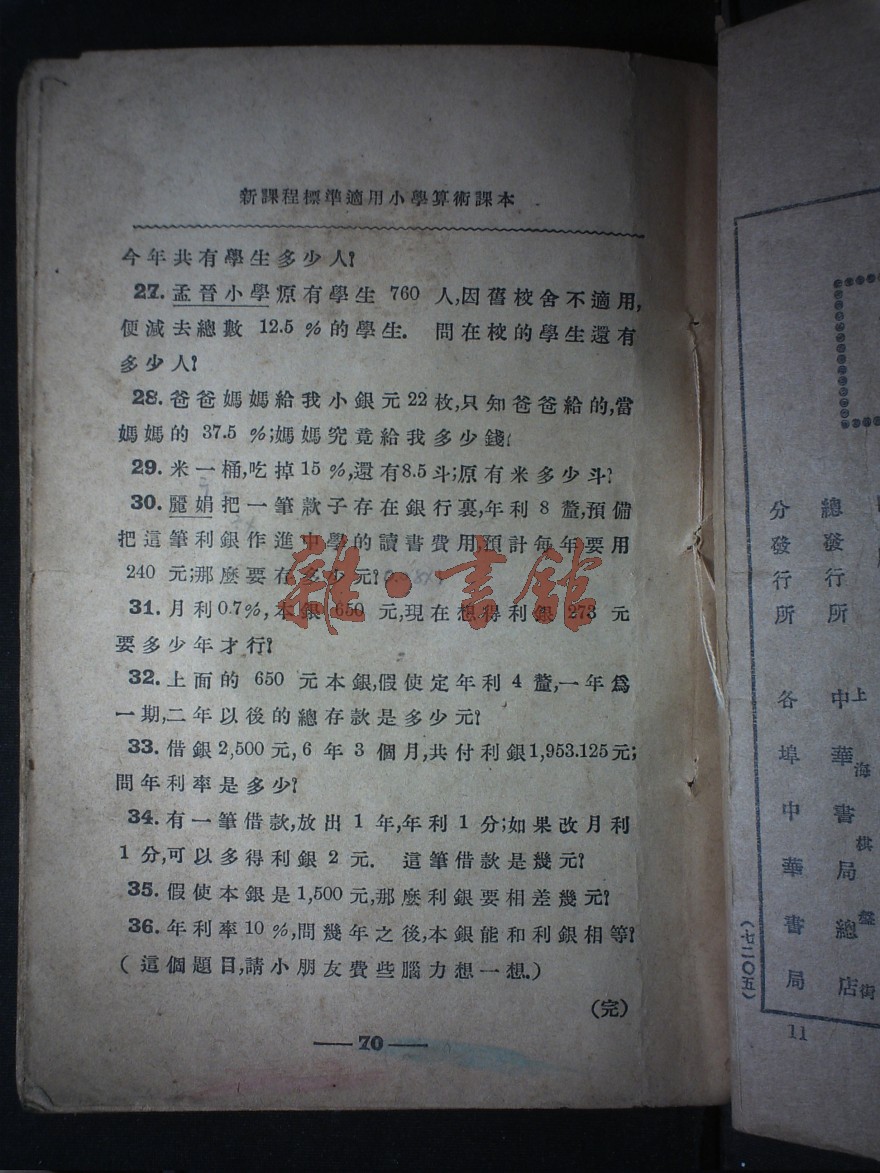 新課程標準適用小學算術課本
今年共有學生多少人?
27. 孟晉小學原有學生 760 人,因舊校舍不適用,
便減去總數 12.5 % 的學生. 問在校的學生還有
多少人?
28. 爸爸媽媽給我小銀元 22 枚,只知爸爸給的,當
媽媽的 37.5 %;媽媽究竟給我多少錢?
29. 米一桶,吃掉 15 %,還有 8.5 斗;原有米多少斗?
30. 麗娟把一筆款子存在銀行裏,年利 8 釐,預備
把這筆利銀作進中學的讀書費用預計每年要用
240 元;那麼要存多少元?
31. 月利 0.7%, 本銀 650 元,現在想得利銀 273 元
要多少年才行?
32. 上面的 650 元本銀,假使定年利 4 釐,一年爲
一期,二年以後的總存款是多少元?
33. 借銀 2,500 元, 6 年 3 個月,共付利銀 1,953.125 元;
問年利率是多少?
34. 有一筆借款,放出 1 年,年利 1 分;如果改月利
1 分,可以多得利銀 2 元. 這筆借款是幾元?
35. 假使本銀是 1,500 元,那麼利銀要相差幾元?
36. 年利率 10 %,問幾年之後,本銀能和利銀相等?
( 這個題目,請小朋友費些腦力想一想.)
(完)
— 70 —
雜·書館
總發行所 中華書局總店
上海棋盤街
分發行所 各埠中華書局
(七二〇五)
11